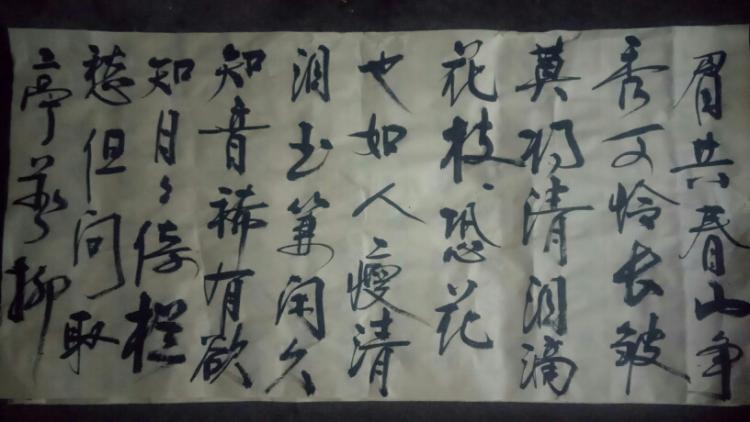 眉共春山争
秀可怜长皱
莫将清泪滴
花枝恐花
也如人瘦清
润玉箫闲久
知音稀有欲
知日日倚栏
愁但问取
亭前柳